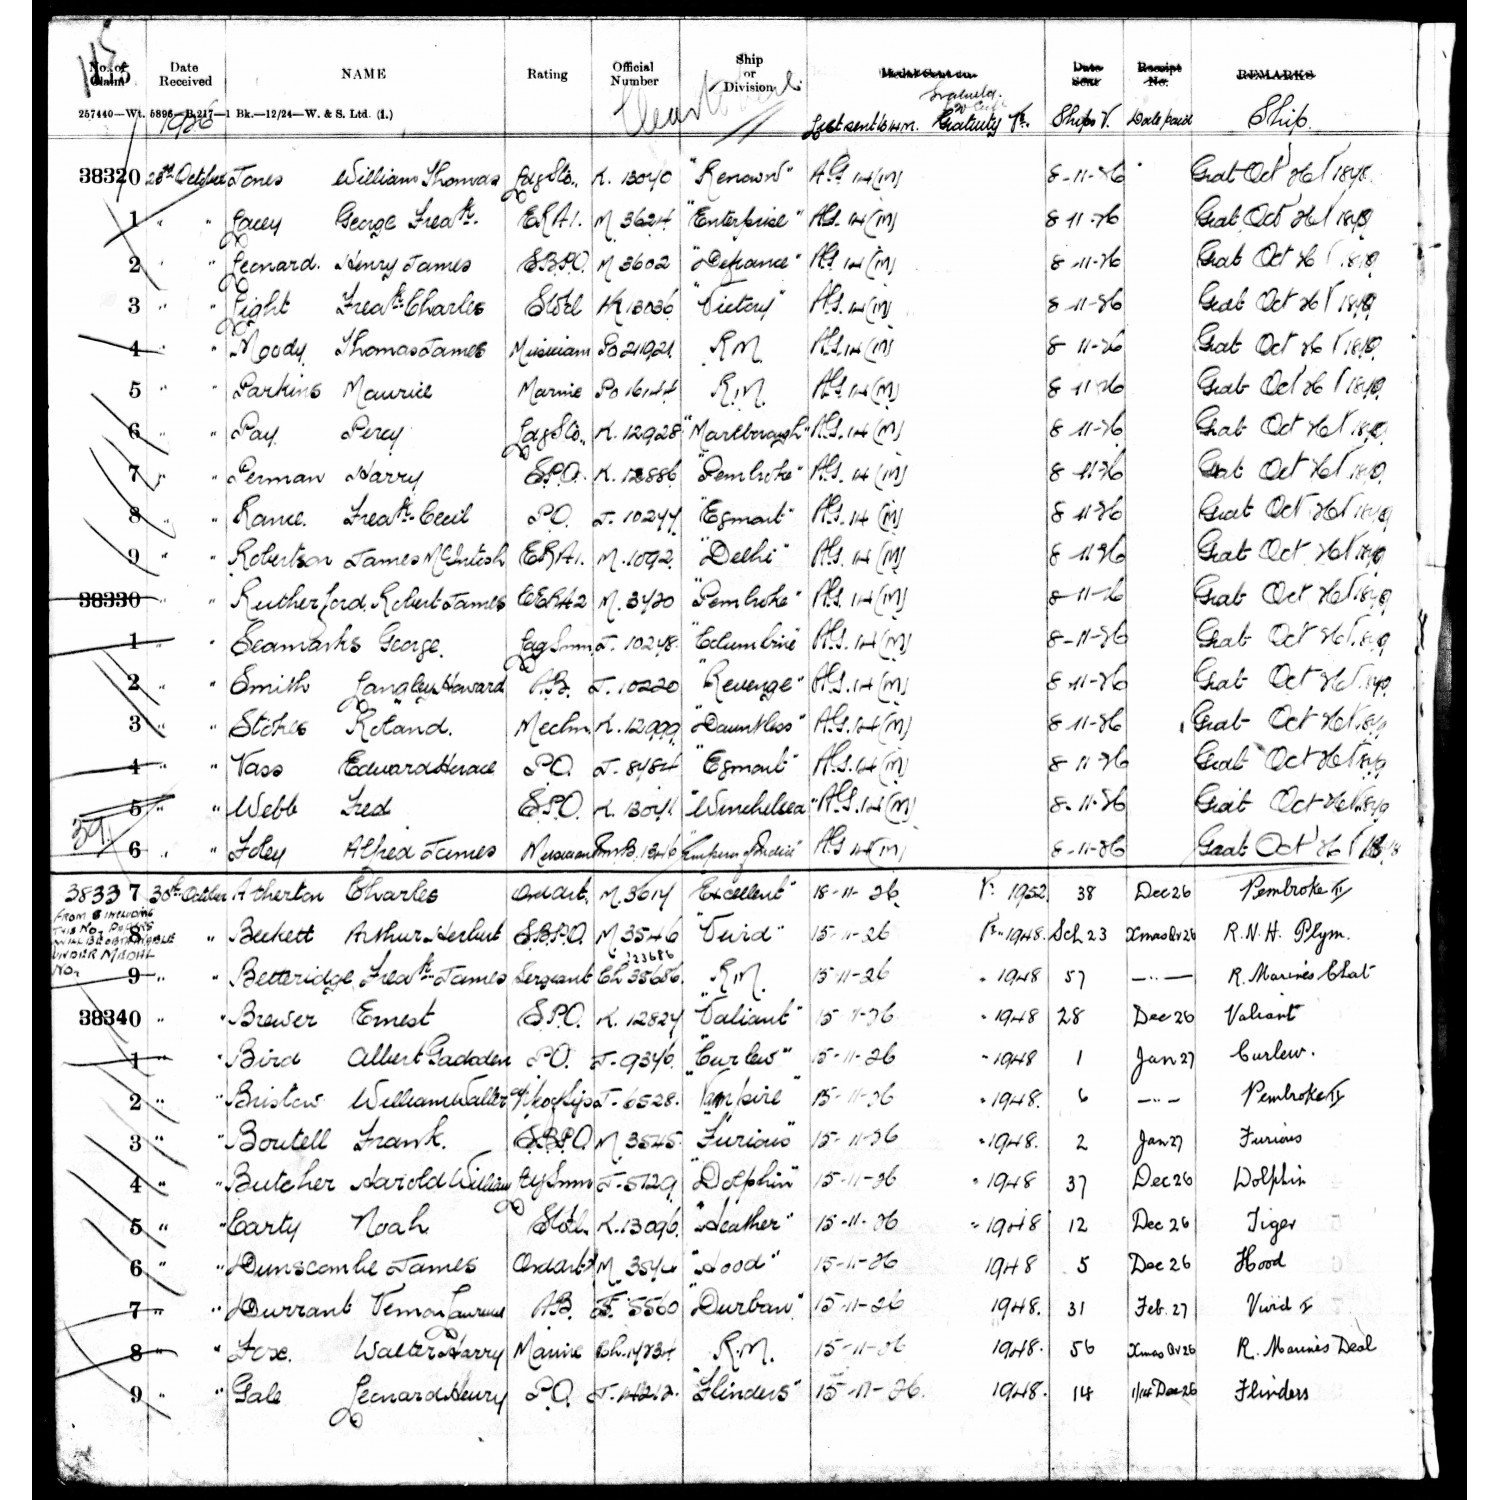 115
No. of Claim Date Received NAME Rating Official Number Ship or Division Medal Sent on Date Sent Receipt No. REMARKS
257440—Wt. 5896—B.217—1 Bk.—12/24—W. & S. Ltd. (1.)
1926 List sent to A.G.14.M. Gratuity Vr. Ships V. Date paid Ship.
38320 28th October Jones William Thomas Ldg Sto. K. 13040 "Renown" A.G. 14 (M) 8-11-26 Grat Oct 26 V 1848.
1 " " Lacey George Fredk. ERA 1. M. 3624 "Enterprise" A.G. 14 (M) 8-11-26 Grat Oct 26 V 1848
2 " " Leonard. Henry James S.B.P.O. M 3602 "Defiance" A.G. 14 (M) 8-11-26 Grat Oct 26 V 1848
3 " " Light Fredk Charles Sto 1cl K 13036 "Victory" A.G. 14 (M) 8-11-26 Grat Oct 26 V 1848
4 " " Moody Thomas James Musician Po 21921 R.M. A.G. 14 (M) 8-11-26 Grat Oct 26 V 1848
5 " " Parkins Maurice Marine Po 16144 R.M. A.G. 14 (M) 8-11-26 Grat Oct 26 V 1848
6 " " Pay Percy Ldg Sto. K. 12928 "Marlborough" A.G. 14 (M) 8-11-26 Grat Oct 26 V 1848
7 " " Perman Harry S.P.O. K. 12886 "Pembroke" A.G. 14 (M) 8-11-26 Grat Oct 26 V 1848
8 " " Rance. Fredk. Cecil P.O. J. 10247 "Egmont" A.G. 14 (M) 8-11-26 Grat Oct 26 V 1848
9 " " Robertson James McIntosh ERA 1. M. 1092 "Delhi" A.G. 14 (M) 8-11-26 Grat Oct 26 V 1848
38330 " " Rutherford, Robert James CERA 2 M. 3420 "Pembroke" A.G. 14 (M) 8-11-26 Grat Oct 26 V 1848
1 " " Seamarks George. Ldg Smn J. 10248. "Columbine" A.G. 14 (M) 8-11-26 Grat Oct 26 V 1848
2 " " Smith Langley Howard A.B. J. 10220 "Revenge" A.G. 14 (M) 8-11-26 Grat Oct 26 V 1848
3 " " Stokes Roland. Mechn K. 12999 "Dauntless" A.G. 14 (M) 8-11-26 Grat Oct 26 V 1848
4 " " Vass Edward Horace P.O. J. 8484 "Egmont" A.G. 14 (M) 8-11-26 Grat Oct 26 V 1848
5 " " Webb Fred S.P.O. K. 13041. "Winchelsea" A.G. 14 (M) 8-11-26 Grat Oct 26 V 1848
6 " " Foley Alfred James Musician RMB. 1346 "Emperor of India" A.G. 14 (M) 8-11-26 Grat Oct 26 V 1848
38337 30th October Atherton Charles Ord art. M. 3617 "Excellent" 18-11-26 Vr. 1952. 38 Dec 26 Pembroke II
FROM & INCLUDING THIS No. PAPERS WILL BE OBTAINABLE UNDER MEDAL No.
8 " Beckett Arthur Herbert S.B.P.O. M. 3546 "Vivid" 15-11-26 Vr. 1948. Sch 23 Xmas Qr 26 R.N.H. Plym.
9 " Betteridge Fredk. James Sergeant Ch 35686. 23686 R.M. 15-11-26 " 1948 57 —"— R. Marines Chat
38340 " " Brewer Ernest S.P.O. K. 12827 "Valiant" 15-11-26 " 1948 28 Dec 26 Valiant
1 " " Bird Albert Gadsden P.O. J. 9346. "Curlew" 15-11-26 " 1948 1 Jan 27 Curlew.
2 " " Bristow William Walter J. 6528. "Vampire" 15-11-26 " 1948. 6 —"— Pembroke II
3 " " Boutell Frank. S.B.P.O. M. 3545. "Furious" 15-11-26 " 1948. 2 Jan 27 Furious
4 " " Butcher Harold William Ldg Smn J. 5729 "Dolphin" 15-11-26 " 1948 37 Dec 26 Dolphin
5 " " Carty Noah Sto 1cl K. 13096. "Heather" 15-11-26 " 1948 12 Dec 26 Tiger
6 " " Dunscombe James Ord art M. 3544 "Hood" 15-11-26 1948 5 Dec 26 Hood
7 " " Durrant Vernon Laurence A.B. J. 5560 "Durban" 15-11-26 1948. 31 Feb. 27 Vivid I
8 " " Fox. Walter Harry Marine Ch. 14734 R.M. 15-11-26 1948. 56 Xmas Qr 26 R. Marines Deal
9 " " Gale Leonard Henry P.O. J. 14212. "Flinders" 15-11-26. 1948. 14 1/14 Dec 26 Flinders